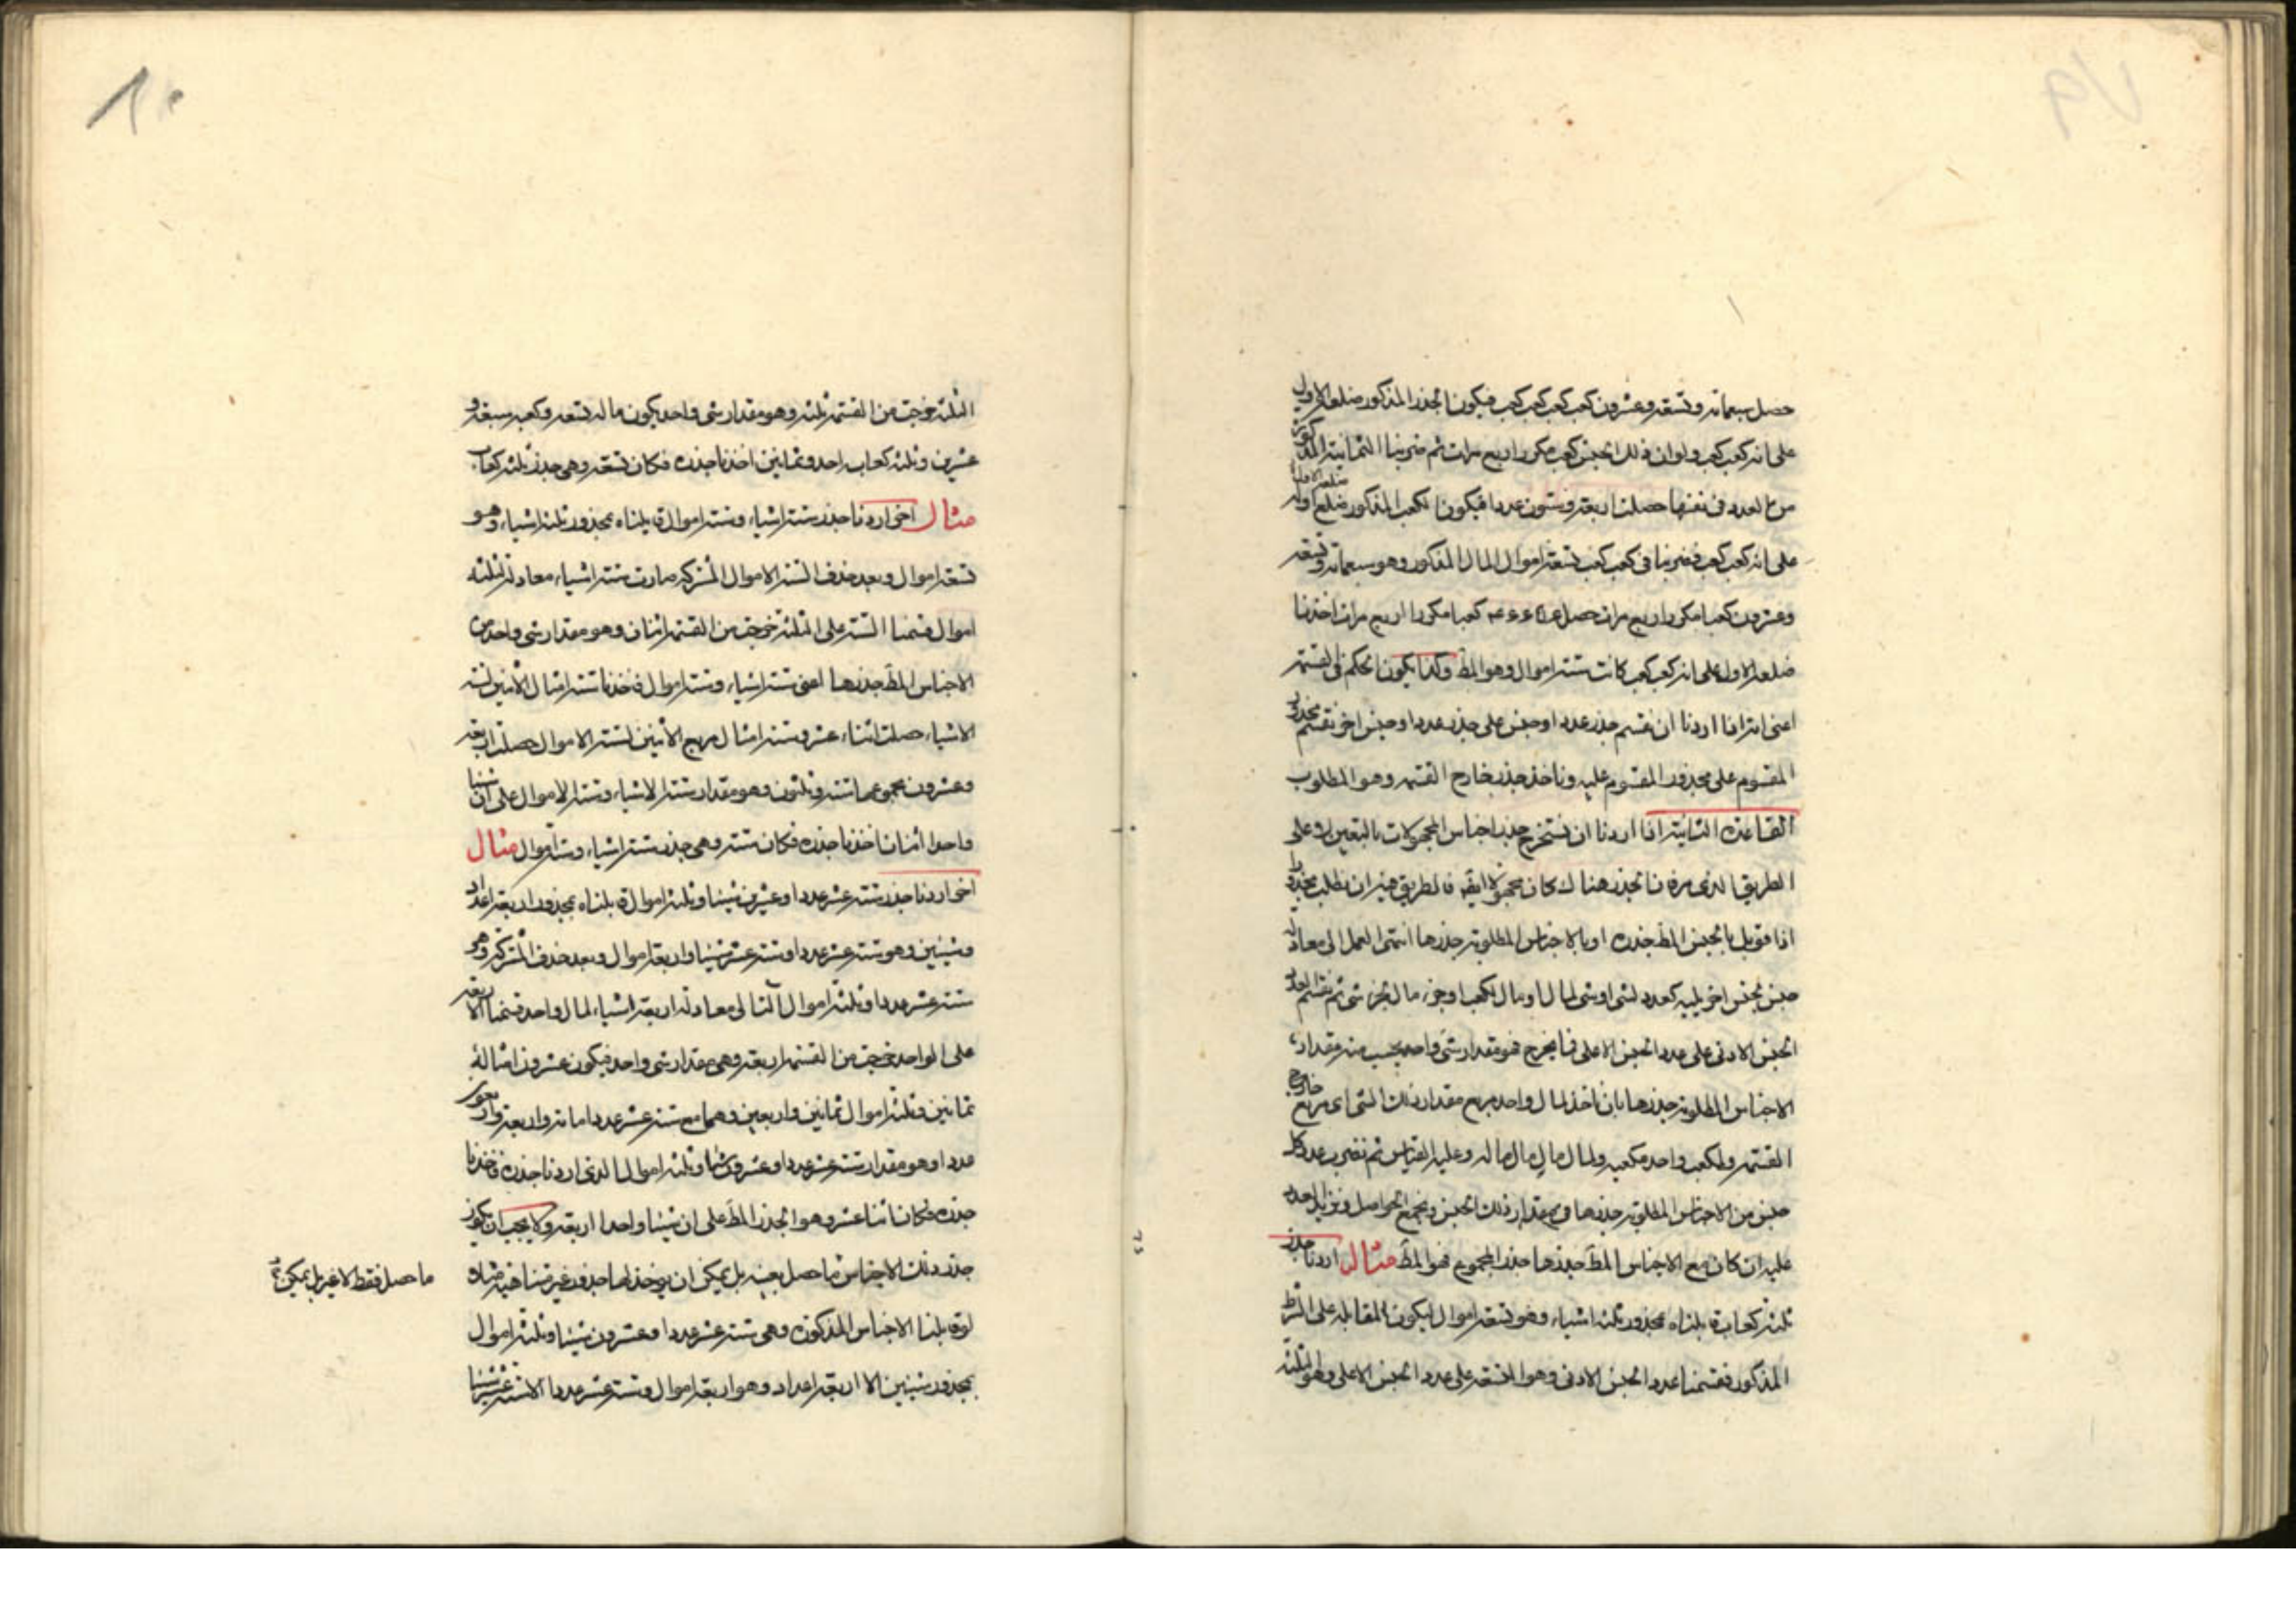 حصل سبعمائة وتسعة وعشرون كعب كعب كعب كعب فيكون الجذر المذكور ضلعه الاول
على انه كعب كعب ولو ان ذلك الجنس كعب مكررا اربع مرات ثم ضربنا الثمانية المذكورة
من العدد في نفسها حصلت اربعة وستون عددا فيكون الكعب المذكور ضلعه الاول
على انه كعب كعب فضربنا في كعب كعب تسعة اموال المال المذكور وهو سبعمائة وتسعة
وعشرون كعبا مكررا اربع مرات حصل كعبا مكررا اربع مرات اخذنا
ضلعه الاول على انه كعب كعب كانت ستة اموال وهو المط وكذا يكون الحكم في القسمة
اعنى انه اذا اردنا ان نقسم جذر عدد او جنس على جذر عدد او جنس اخر نقسم مجذور
المقسوم على مجذور المقسوم عليه وناخذ جذر خارج القسمة وهو المطلوب
القاعدة الثانية اذا اردنا ان نستخرج جذر اجناس المجهولات بالتعيين لا على
الطريق الذى مر فان الجذر هناك كان مجهولا ايضا فالطريق فيه ان نطلب مجذورا
اذا قوبل بالجنس المط جذره او بالاجناس المطلوبة جذرها انتهى العمل الى معادلة
جنس لجنس اخر يليه كعدد لشى او شى لمال او مال لكعب او جزء مال لجزء شى ثم نقسم عدد
الجنس الادنى على عدد الجنس الاعلى فما يخرج فهو مقدار شى واحد يحسب منه مقدار
الاجناس المطلوبة جذرها بان ناخذ لمال واحد مربع مقدار ذلك الشى اى مربع خارج
القسمة ولكعب واحد مكعبه ولمال مال مال ماله وعليه القياس ثم نضرب عدد كل
جنس من الاجناس المطلوبة جذرها في مقدار ذلك الجنس ونجمع الحواصل ونزيد العدد
عليه ان كان مع الاجناس المط جذرها جذر المجموع فهو المط مثال اردنا جذر
ثلثة كعاب قابلناه بمجذور ثلثة اشياء وهو تسعة اموال ليكون المقابلة على الشرط
المذكور فقسمنا عدد الجنس الادنى وهو التسعة على عدد الجنس الاعلى وهو الثلثة
الثلثة خرجت من القسمة ثلثة وهو مقدار شى واحد يكون ماله تسعة وكعبه سبعة و
عشرين وثلثة كعاب احد وثمانين اخذنا جذره فكان تسعة وهى جذر ثلثة كعاب
مثال اخر اردنا جذر ستة اشياء وستة اموال قابلناه بمجذور ثلثة اشياء وهو
تسعة اموال وبعد حذف الستة الاموال المشتركة صارت ستة اشياء معادلة لثلثة
اموال قسمنا الستة على الثلثة خرجت من القسمة اثنان وهو مقدار شى واحد من
الاجناس المط جذرها اعنى ستة اشياء وستة اموال فاخذنا ستة امثال الاثنين لستة
الاشياء حصلت اثنا عشر وستة امثال مربع الاثنين لستة الاموال حصلت اربعة
وعشرون مجموعهما ستة وثلثون وهو مقدار ستة الاشياء وستة الاموال على ان شيئا
واحدا اثنان اخذنا جذره فكان ستة وهى جذر ستة اشياء وستة اموال مثال
اخر اردنا جذر ستة عشر عددا وعشرين شيئا وثلثة اموال قابلناه بمجذور اربعة اعداد
وشيئين وهو ستة عشر عددا وستة عشر شيئا واربعة اموال وبعد حذف المشتركة وهو
ستة عشر عددا وثلثة اموال آلتا الى معادلة اربعة اشياء لمال واحد قسمنا الاربعة
على الواحد خرجت من القسمة اربعة وهى مقدار شى واحد فيكون عشرون امثاله
ثمانين وثلثة اموال ثمانين واربعين وهما مع ستة عشر عددا مائة واربعة واربعون
عددا وهو مقدار ستة عشر عددا وعشرون شيئا وثلثة اموال الذى اردنا جذره فاخذنا
جذره فكان اثنا عشر وهو الجذر المط على ان شيئا واحدا اربعة ولا يجب ان يكون
جذر ذلك الاجناس ما حصل بعينه بل يمكن ان يوخذ لها جذور غير متناهية مثلا و
لو قابلنا الاجناس المذكورة وهى ستة عشر عددا وعشرون شيئا وثلثة اموال
بمجذور شيئين الا اربعة اعداد وهو اربعة اموال وستة عشر عددا الا ستة عشر شيئا
ما حصل فقط لا غير بل يمكن